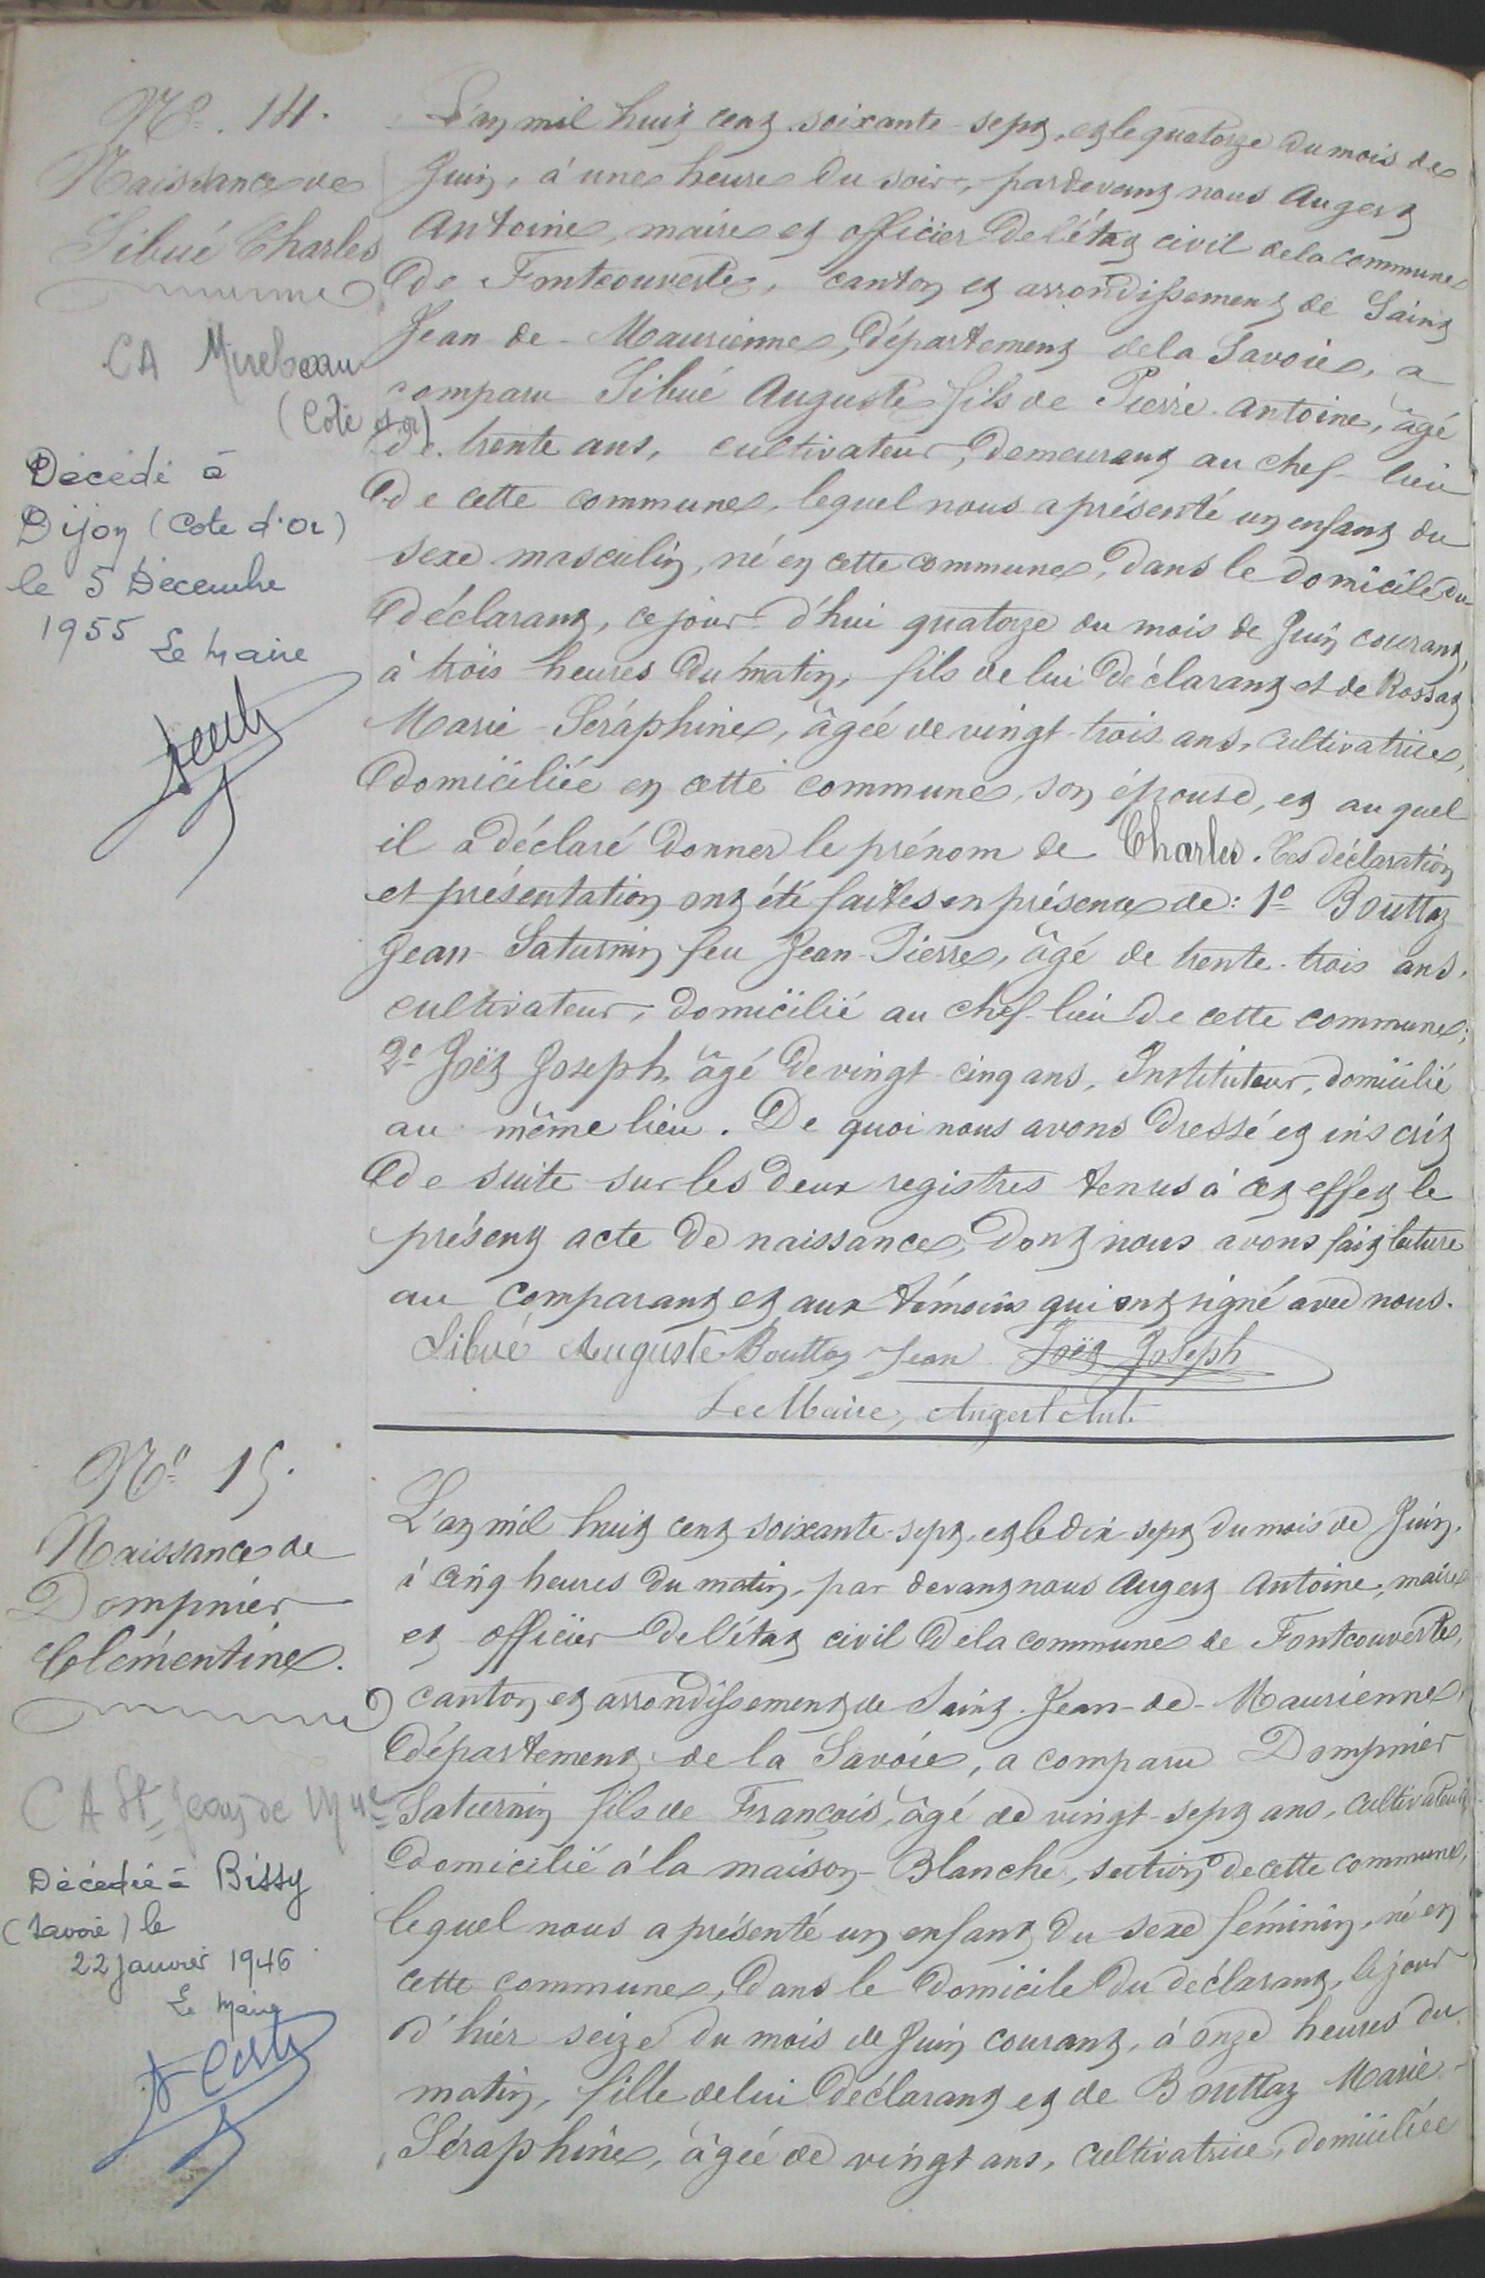 No. 14.
Naissance de
Sibué Charles
CA Mirebeau
(Cote d'or)
Décédé à
Dijon (Cote d'Or)
le 5 Décembre
1955 Le Maire
L'an mil huit cent soixante-sept, et le quatorze du mois de
Juin, à une heure du soir, pardevant nous Augert
Antoine, maire et officier de l'état civil de la commune
de Fontcouverte, canton et arrondissement de Saint
Jean-de-Maurienne, département de la Savoie, a
comparu Sibué Auguste fils de Pierre-Antoine, âgé
de trente ans, cultivateur, demeurant au chef-lieu
de cette commune, lequel nous a présenté un enfant du
sexe masculin, né en cette commune, dans le domicile du
déclarant, ce jour-d'hui quatorze du mois de Juin courant,
à trois heures du matin, fils de lui déclarant et de Rossat
Marie-Séraphine, âgée de vingt-trois ans, cultivatrice,
domiciliée en cette commune, son épouse, et auquel
il a déclaré donner le prénom de Charles. Ces déclaration
et présentation ont été faites en présence de: 1o Bouttaz
Jean-Saturnin feu Jean-Pierre, âgé de trente-trois ans,
cultivateur, domicilié au chef-lieu de cette commune;
2o Joët Joseph, âgé de vingt-cinq ans, Instituteur, domicilié
au même lieu. De quoi nous avons dressé et inscrit
de suite sur les deux registres tenus à cet effet le
présent acte de naissance, dont nous avons fait lecture
au comparant et aux témoins qui ont signé avec nous.
Sibué Auguste Bouttaz Jean Joët Joseph
Le Maire, Augert Ant.
No 15.
Naissance de
Dompnier
Clémentine.
CA St Jean de Mne
Décédée à Bissy
(Savoie) le
22 Janvier 1946
Le Maire
L'an mil huit cent soixante-sept, et le dix-sept du mois de Juin,
à cinq heures du matin, par devant nous Augert Antoine, maire
et officier de l'état civil de la commune de Fontcouverte,
canton et arrondissement de Saint-Jean-de-Maurienne,
département de la Savoie, a comparu Dompnier
Saturnin fils de François, âgé de vingt-sept ans, cultivateur
domicilié à la maison-Blanche, section de cette commune,
lequel nous a présenté un enfant du sexe féminin, né en
cette commune, dans le domicile du déclarant, le jour
d'hier seize du mois de Juin courant, à onze heures du
matin, fille de lui déclarant et de Bouttaz Marie-
Séraphine, âgée de vingt ans, cultivatrice, domiciliée